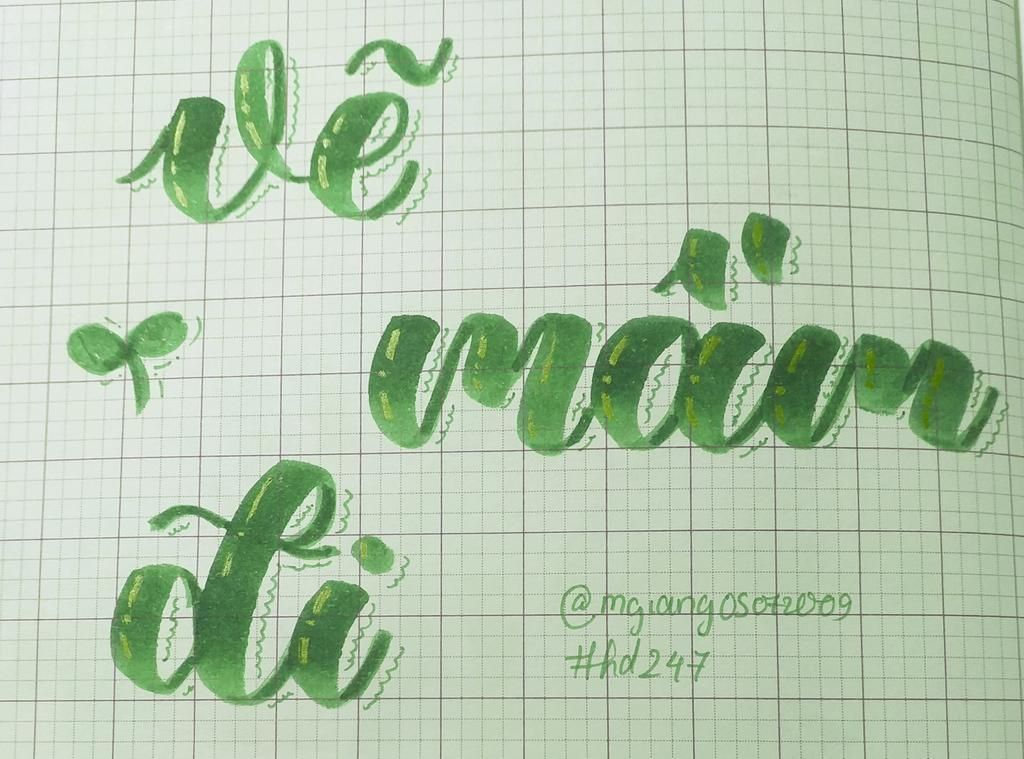 vẽ
mầm
đi
@mgiang05072009
#hd247